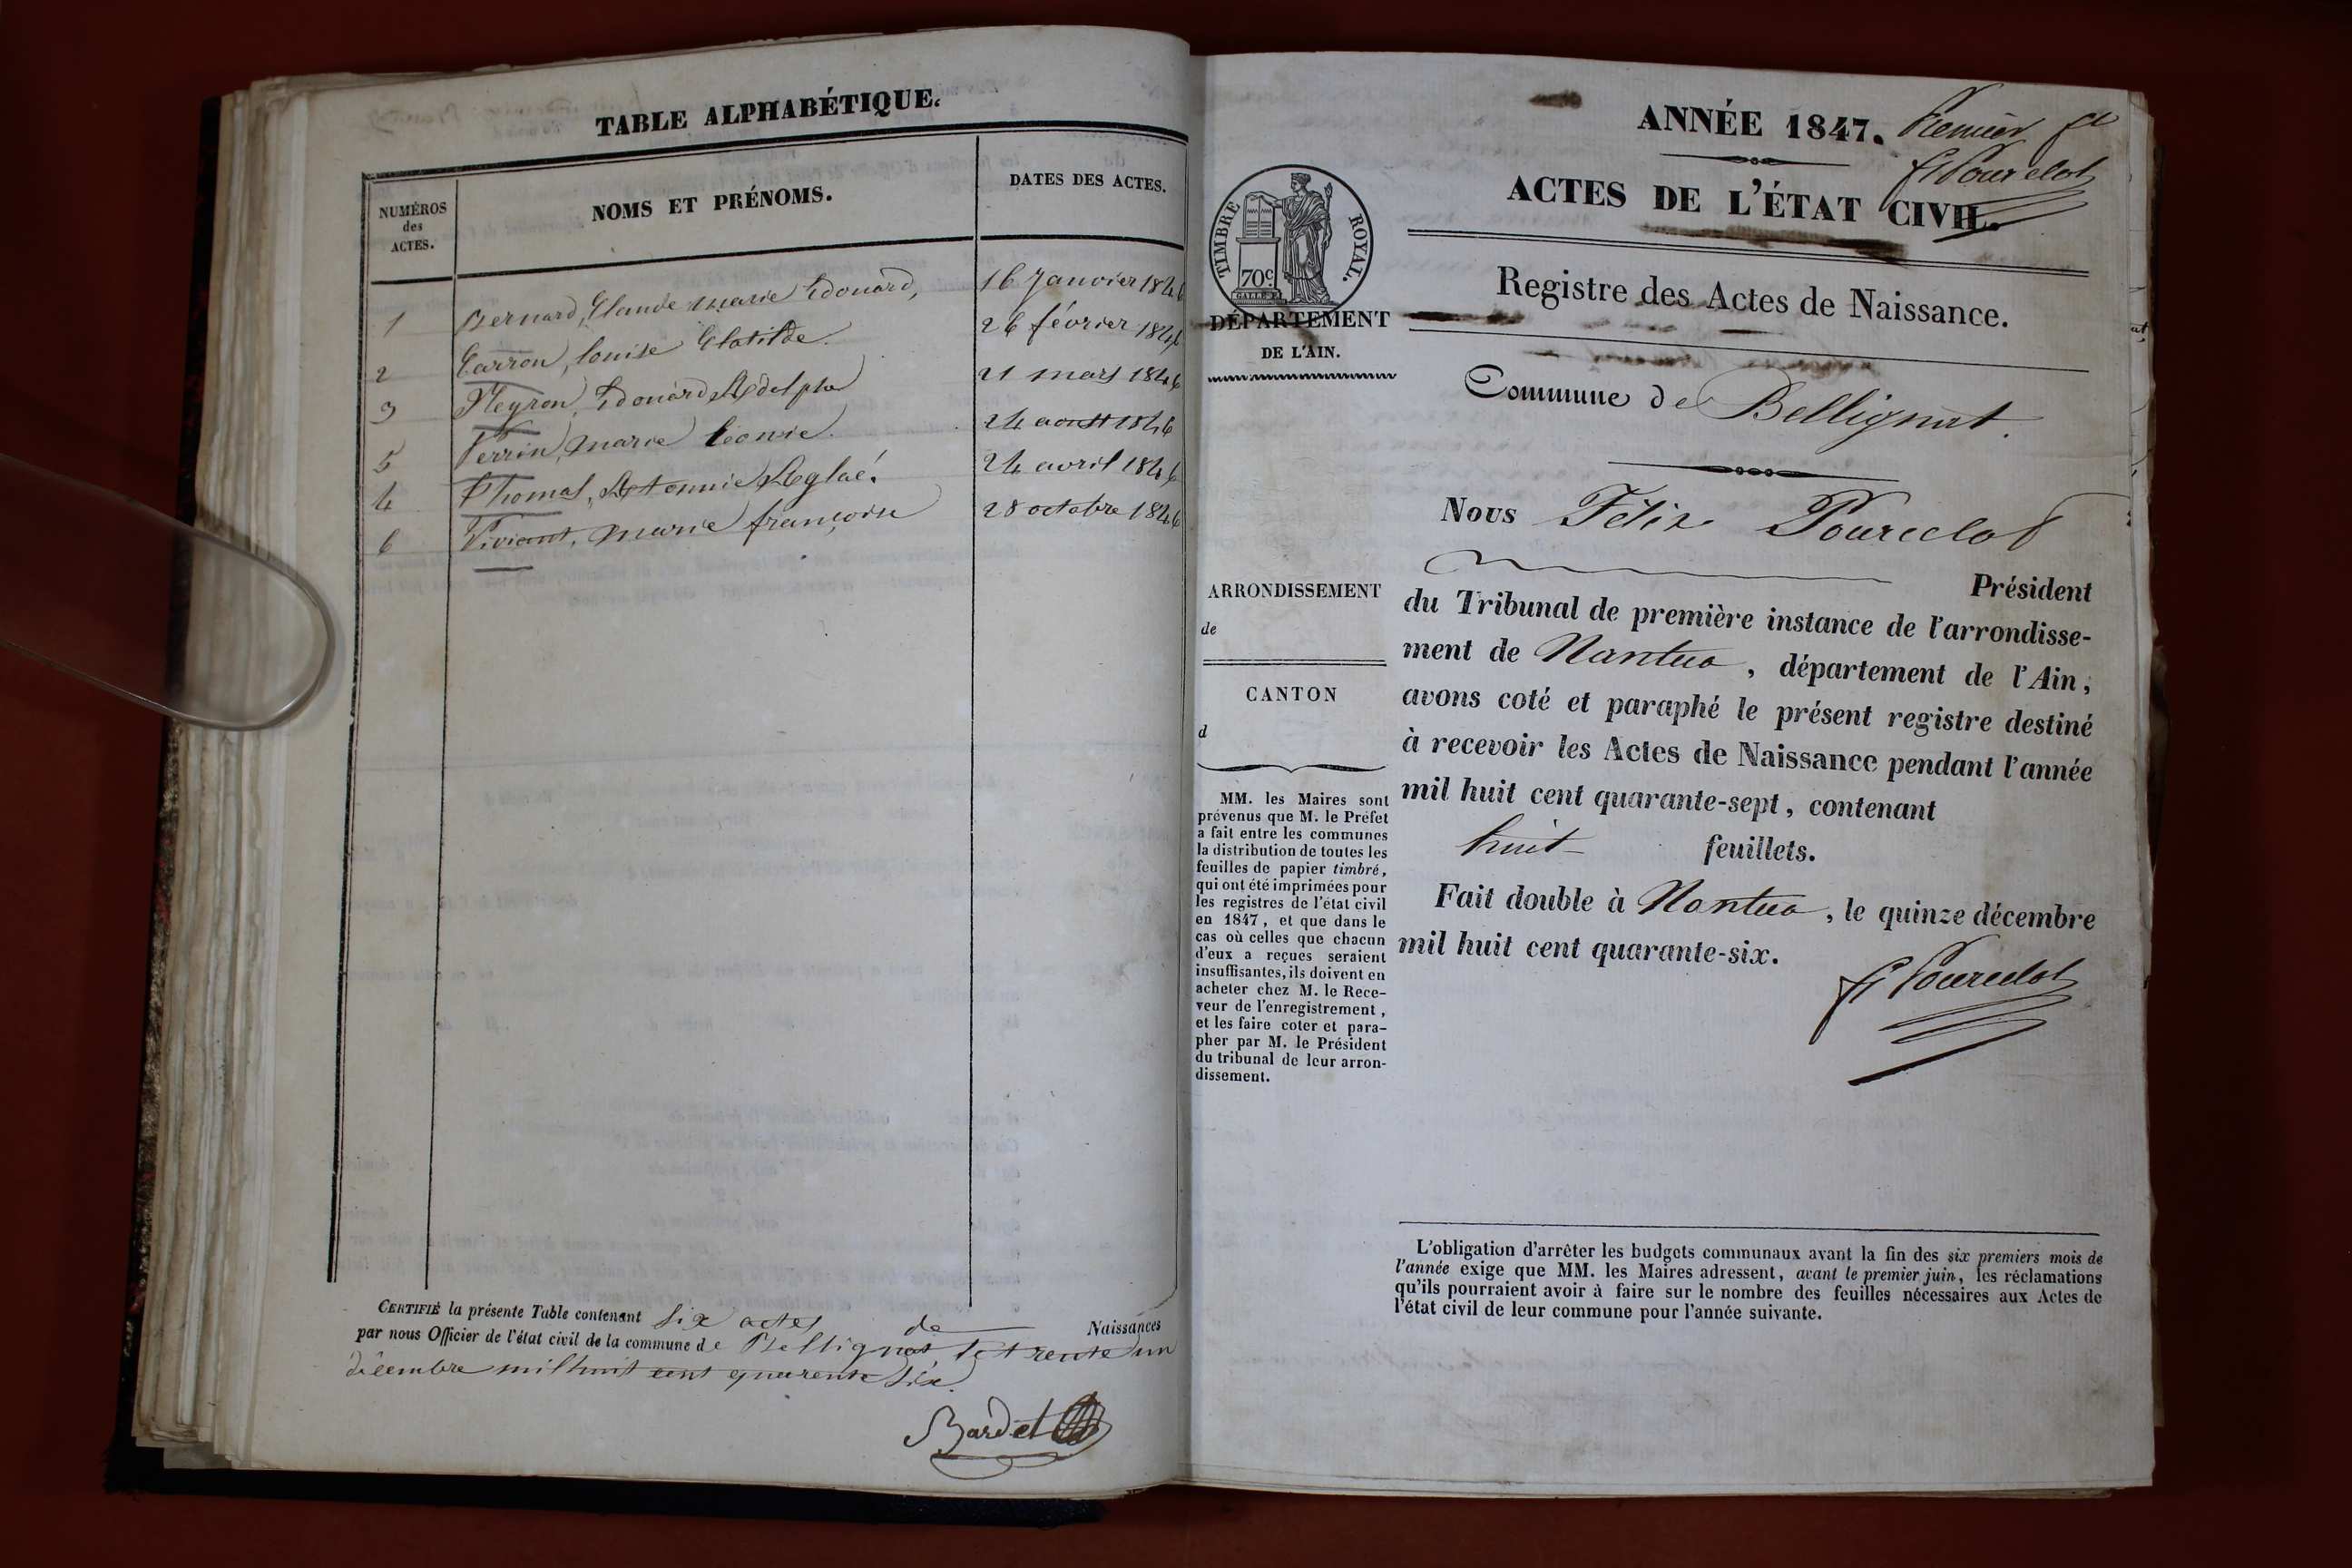 TABLE ALPHABÉTIQUE.
NUMÉROS
des
ACTES.
NOMS ET PRÉNOMS.
DATES DES ACTES.
1 Bernard, Claude marie Edouard, 16 Janvier 1846
2 Carron, louise Clotilde. 26 février 1846
3 Meyron, Edouard Adolphe 21 mars 1846
5 Perrin, marie léonie. 24 aoust 1846
4 Thomas, Antonnie Aglaé. 24 avril 1846
6 Viviant, marie françoise 28 octobre 1846
CERTIFIÉ la présente Table contenant six actes de Naissances
par nous Officier de l'état civil de la commune de Bellignat le trente un
décembre mil huit cent quarente six.
Bardet
ANNÉE 1847. Premier
F Pourclot
ACTES DE L'ÉTAT CIVIL.
Registre des Actes de Naissance.
TIMBRE ROYAL.
70c.
DÉPARTEMENT
DE L'AIN.
Commune de Bellignat.
Nous Félix Pourcelot
Président
du Tribunal de première instance de l'arrondisse-
ment de Nantua, département de l'Ain,
avons coté et paraphé le présent registre destiné
à recevoir les Actes de Naissance pendant l'année
mil huit cent quarante-sept, contenant
huit feuillets.
Fait double à Nantua, le quinze décembre
mil huit cent quarante-six.
F Pourcelot
ARRONDISSEMENT
de
CANTON
d
MM. les Maires sont
prévenus que M. le Préfet
a fait entre les communes
la distribution de toutes les
feuilles de papier timbré,
qui ont été imprimées pour
les registres de l'état civil
en 1847, et que dans le
cas où celles que chacun
d'eux a reçues seraient
insuffisantes, ils doivent en
acheter chez M. le Rece-
veur de l'enregistrement,
et les faire coter et para-
pher par M. le Président
du tribunal de leur arron-
dissement.
L'obligation d'arrêter les budgets communaux avant la fin des six premiers mois de
l'année exige que MM. les Maires adressent, avant le premier juin, les réclamations
qu'ils pourraient avoir à faire sur le nombre des feuilles nécessaires aux Actes de
l'état civil de leur commune pour l'année suivante.